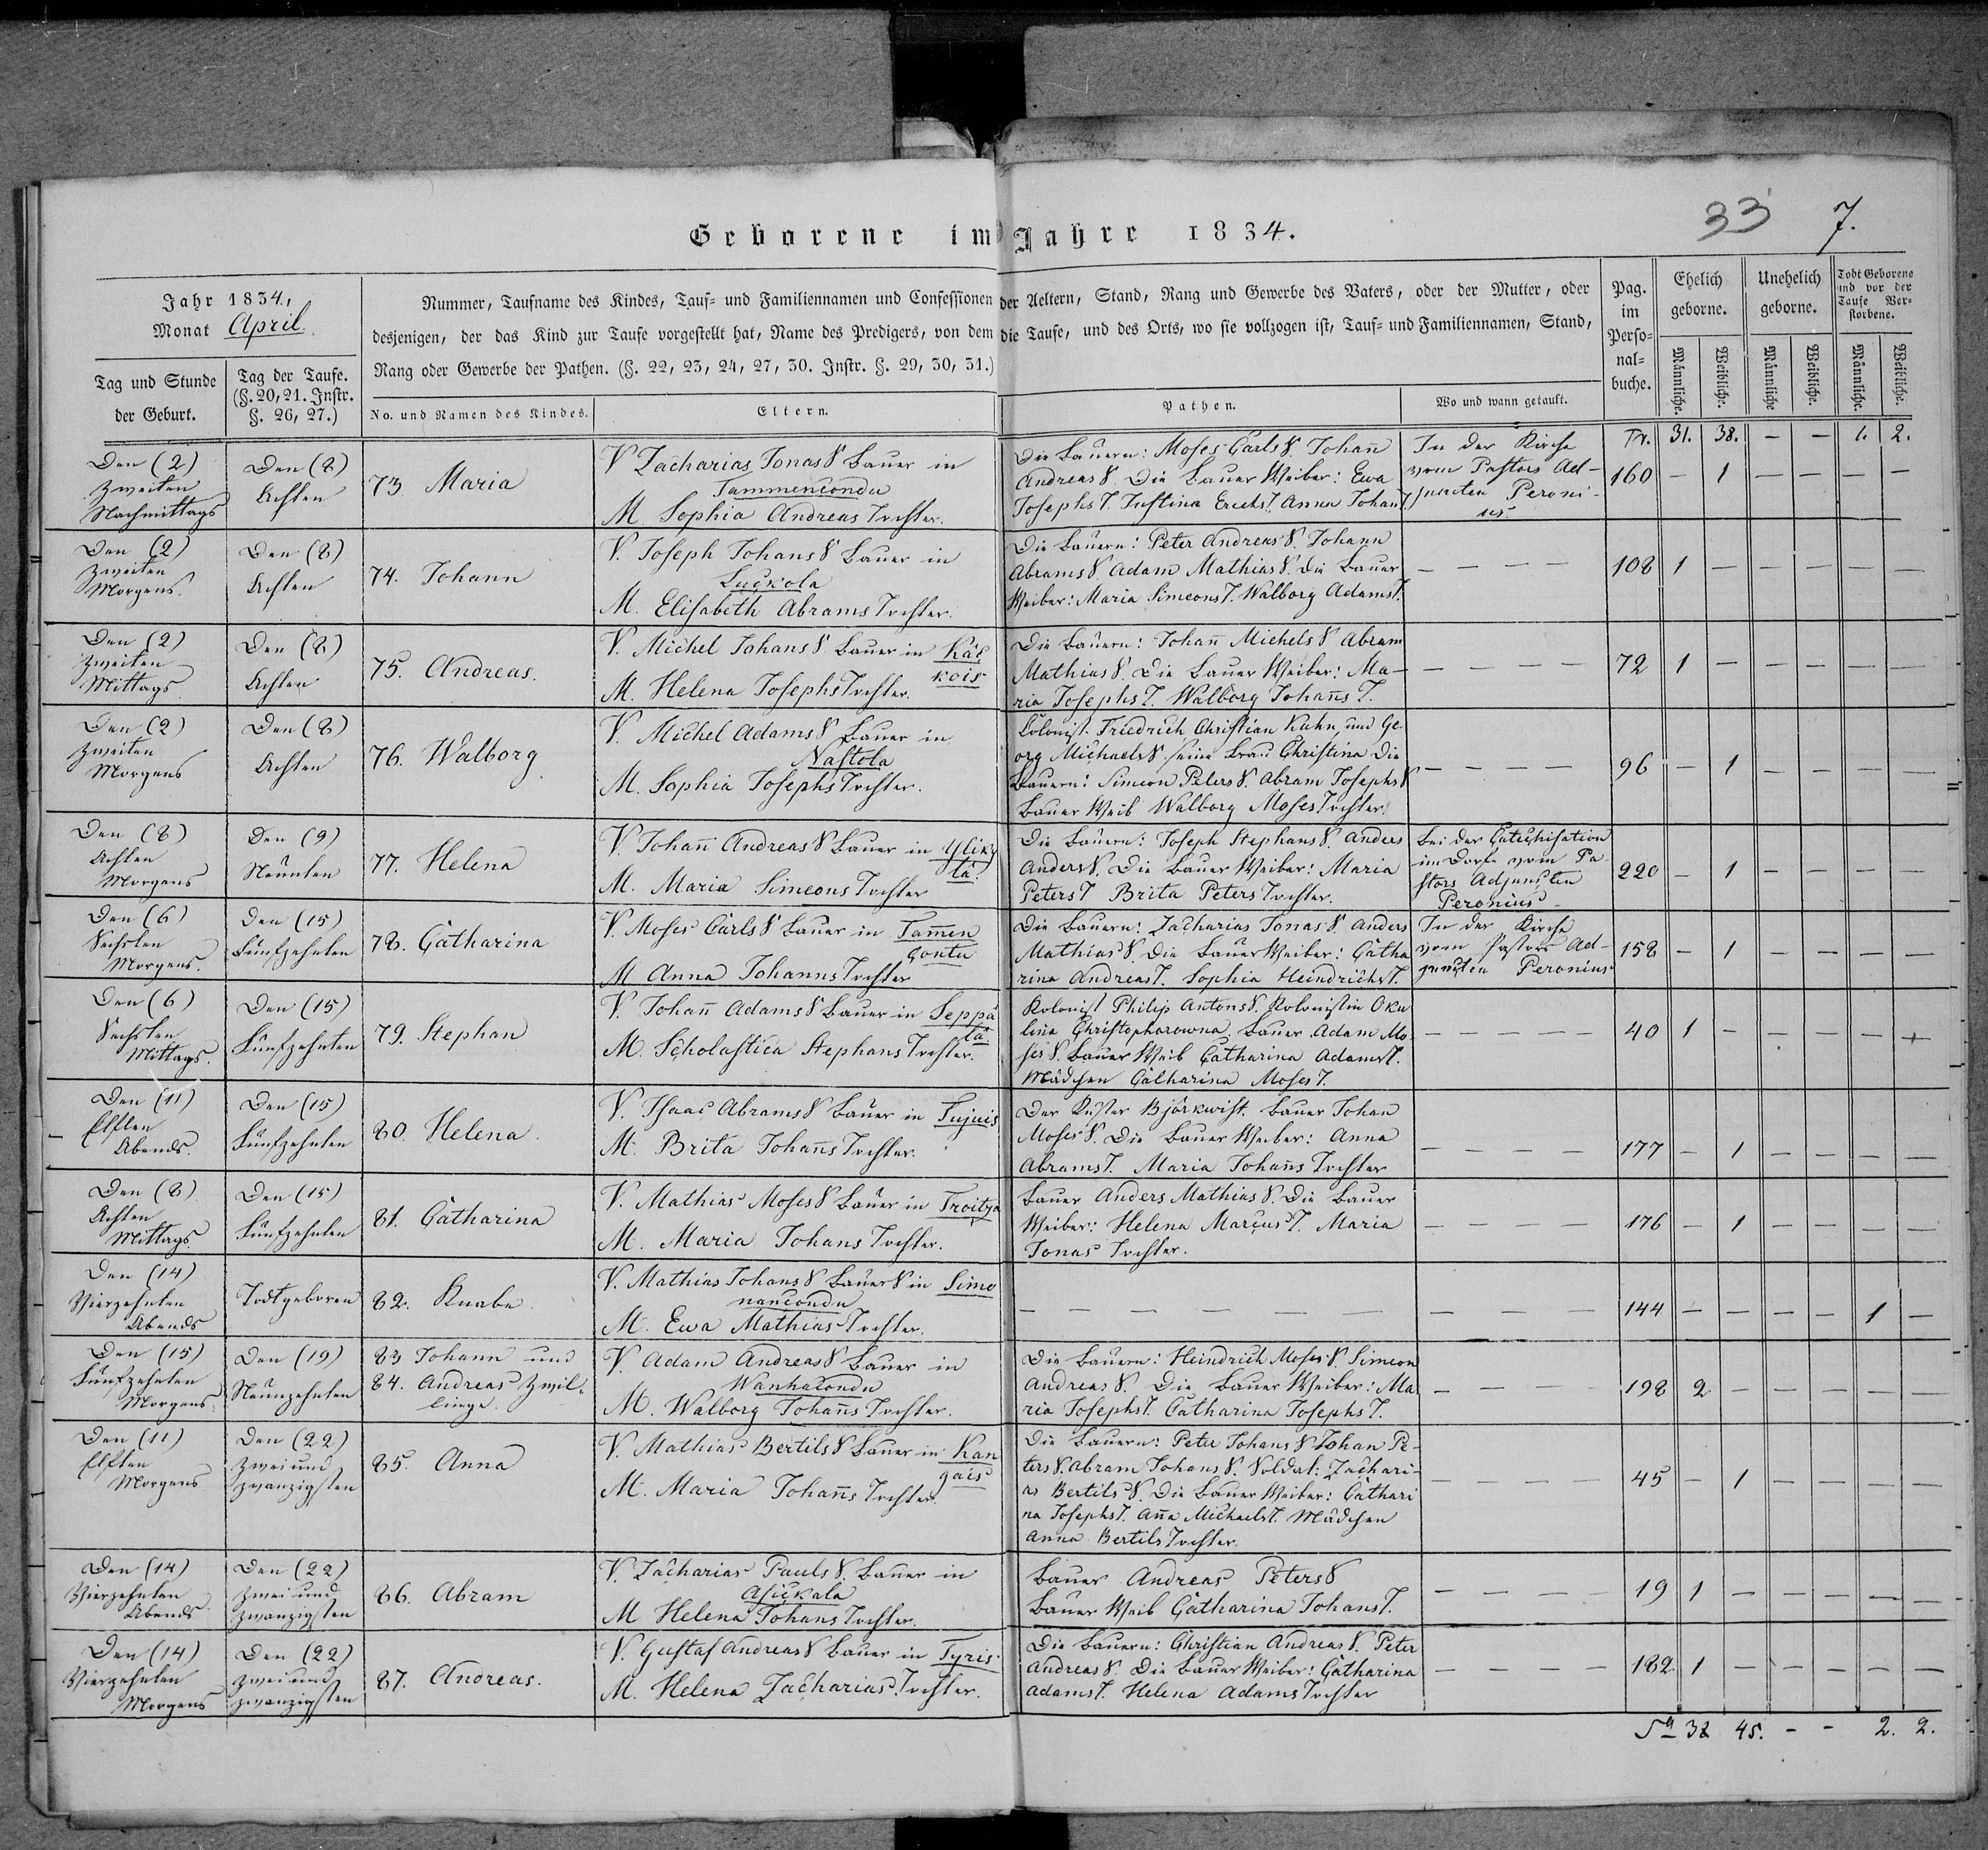 33 7.
Geborene im Jahre 1834.
Jahr 1834,
Monat April.
Tag und Stunde
der Geburt.
Tag der Taufe.
(§. 20, 21. Instr.
§. 26, 27.)
Nummer, Taufname des Kindes, Tauf- und Familiennamen und Confessionen der Aeltern, Stand, Rang und Gewerbe des Vaters, oder der Mutter, oder
desjenigen, der das Kind zur Taufe vorgestellt hat, Name des Predigers, von dem die Taufe, und des Orts, wo sie vollzogen ist, Tauf- und Familiennamen, Stand,
Rang oder Gewerbe der Pathen. (§. 22, 23, 24, 27, 30. Instr. §. 29, 30, 31.)
No. und Namen des Kindes.
Eltern.
Pathen.
Wo und wann getauft.
Pag.
im
Perso-
nal-
buche.
Ehelich
geborne.
Unehelich
geborne.
Todt Geborene
und vor der
Taufe Ver-
storbene.
Männliche.
Weibliche.
Männliche
Weibliche.
Männliche.
Weibliche.
Tr. 31. 38. – – 1. 2.
Den (2)
Zweiten
Nachmittags
Den (8)
Achten
73. Maria
V. Zacharias Jonas S. Bauer in
Tammencondu
M. Sophia Andreas Tochter.
Die Bauern: Moses Carls S. Johann
Andreas S. Die Bauer Weiber: Ewa
Josephs T. Justina Erichs T. Anna Johans T.
In der Kirche
vom Pastors Ad-
juncten Peroni-
us.
160 – 1 – – – –
Den (2)
Zweiten
Morgens.
Den (8)
Achten
74. Johann
V. Joseph Johans S. Bauer in
Luckola
M. Elisabeth Abrams Tochter.
Die Bauern: Peter Andreas S. Johann
Abrams S. Adam Mathias S. Die Bauer
Weiber: Maria Simeons T. Walborg Adams T.
– – – –
108 1 – – – – –
Den (2)
Zweiten
Mittags
Den (8)
Achten
75. Andreas.
V. Michel Johans S. Bauer in Käs
kois
M. Helena Josephs Tochter.
Die Bauern: Johan̄ Michels S. Abram
Mathias S. Die Bauer Weiber: Ma-
ria Josephs T. Walborg Johan̄s T.
– – – –
72 1 – – – – –
Den (2)
Zweiten
Morgens
Den (8)
Achten
76. Walborg
V. Michel Adams S. Bauer in
Nastola
M. Sophia Josephs Tochter.
Colonist Friedrich Christian Kuhn, und Ge-
org Michaels S. seine Frau Christina Die
Bauern: Simeon Peters S. Abram Josephs S.
Bauer Weib Walborg Moses Tochter.
– – – –
96 – 1 – – – –
Den (8)
Achten
Morgens
Den (9)
Neunten
77. Helena
V. Johan̄ Andreas S. Bauer in Ylikÿ
lä.
M. Maria Simeons Tochter
Die Bauern: Joseph Stephans S. Anders
Anders S. Die Bauer Weiber: Maria
Peters T. Brita Peters Tochter.
Bei der Catechisation
im Dorfe vom Pa-
stors Adjuncten
Peronius.
220 – 1 – – – –
Den (6)
Sechsten
Morgens.
Den (15)
Fünfzehnten
78. Catharina
V. Moses Carls S. Bauer in Tam̄en
contu
M. Anna Johanns Tochter
Die Bauern: Zacharias Jonas S. Anders
Mathias S. Die Bauer Weiber: Catha
rina Andreas T. Sophia Heindrichs T.
In der Kirche
vom Pastors Ad-
juncten Peronius
158 – 1 – – – –
Den (6)
Sechsten
Mittags.
Den (15)
Fünfzehnten
79. Stephan
V. Johan̄ Adams S. Bauer in Seppä
lä
M. Scholastica Stephans Tochter.
Kolonist Philip Antons S. Kolonistin Oku
lina Christopharowna. Bauer Adam Mo-
ses S. Bauer Weib Catharina Adams T.
Mädchen Catharina Moses T.
– – – –
40 1 – – – – –
Den (11)
Elften
Abends.
Den (15)
Fünfzehnten
80. Helena.
V. Isaac Abrams S. Bauer in Tujuis
M. Brita Johan̄s Tochter.
Der Küster Björkwist. Bauer Johan
Moses S. Die Bauer Weiber: Anna
Abrams T. Maria Johan̄s Tochter
– – – –
177 – 1 – – – –
Den (8)
Achten
Mittags.
Den (15)
Fünfzehnten
81. Catharina
V. Mathias Moses S. Bauer in Troitza
M. Maria Johans Tochter.
Bauer Anders Mathias S. Die Bauer
Weiber: Helena Marcus T. Maria
Jonas Tochter.
– – – –
176 – 1 – – – –
Den (14)
Vierzehnten
Abends
Todtgeboren
82. Knabe
V. Mathias Johans S. Bauer S. in Simo
nancondu
M. Ewa Mathias Tochter.
– – – – – – – – – –
144 – – – – 1 –
Den (15)
Fünfzehnten
Morgens.
Den (19)
Neunzehnten
83 Johann und
84. Andreas Zwil-
linge.
V. Adam Andreas S. Bauer in
Wanhacondu
M. Walborg Johan̄s Tochter.
Die Bauern: Heindrich Moses S. Simeon
Andreas S. Die Bauer Weiber: Ma
ria Josephs T. Catharina Josephs T.
– – –
198 2 – – – – –
Den (11)
Elften
Morgens
Den (22)
Zwei und
zwanzigsten
85. Anna
V. Mathias Bertils S. Bauer in Kan
gais
M. Maria Johan̄s Tochter.
Die Bauern: Peter Johans S. Johan Pe-
ters S. Abram Johans S. Soldat: Zachari-
as Bertils S. Die Bauer Weiber: Cathari
na Josephs T. An̄a Michaels T. Mädchen
Anna Bertils Tochter.
– – – –
45 – 1 – – – –
Den (14)
Vierzehnten
Abends
Den (22)
Zwei und
zwanzigsten
86. Abram
V. Zacharias Pauls S. Bauer in
Asickala
M. Helena Johans Tochter.
Bauer Andreas Peters S
Bauer Weib Catharina Johans T.
– – – –
19 1 – – – – –
Den (14)
Vierzehnten
Morgens
Den (22)
Zwei und
zwanzigsten
87. Andreas.
V. Gustaf Andreas S. Bauer in Tyris.
M. Helena Zacharias Tochter.
Die Bauern: Christian Andreas S. Peter
Andreas S. Die Bauer Weiber: Catharina
Adams T. Helena Adams Tochter
– – – –
182 1 – – – – –
Sa 38 45. – – 2. 2.